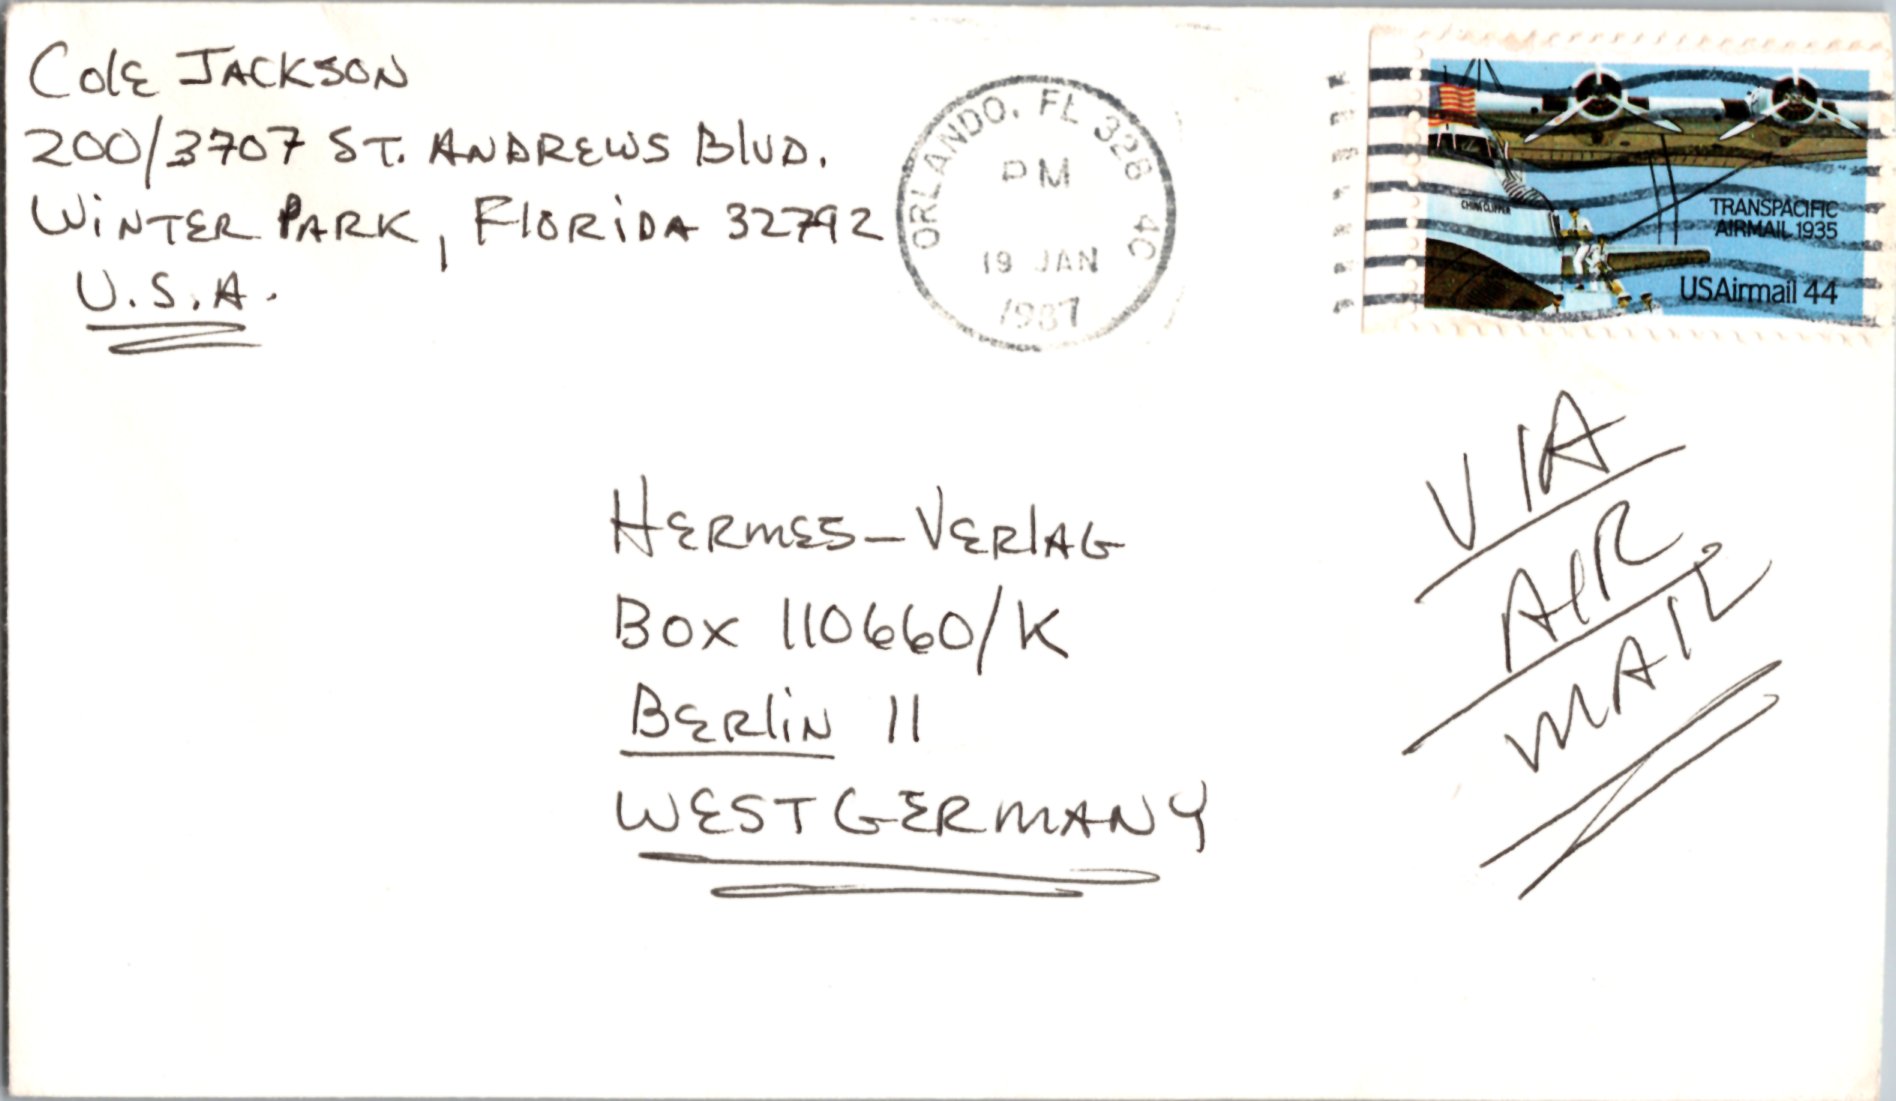 Cole Jackson
200/3707 St. Andrews Blvd.
Winter Park, Florida 32792
U.S.A.
ORLANDO, FL 328 4C
PM
19 JAN
1987
CHINA CLIPPER
TRANSPACIFIC
AIRMAIL 1935
USAirmail 44
VIA
AIR
MAIL
Hermes-Verlag
Box 110660/K
Berlin 11
WEST GERMANY